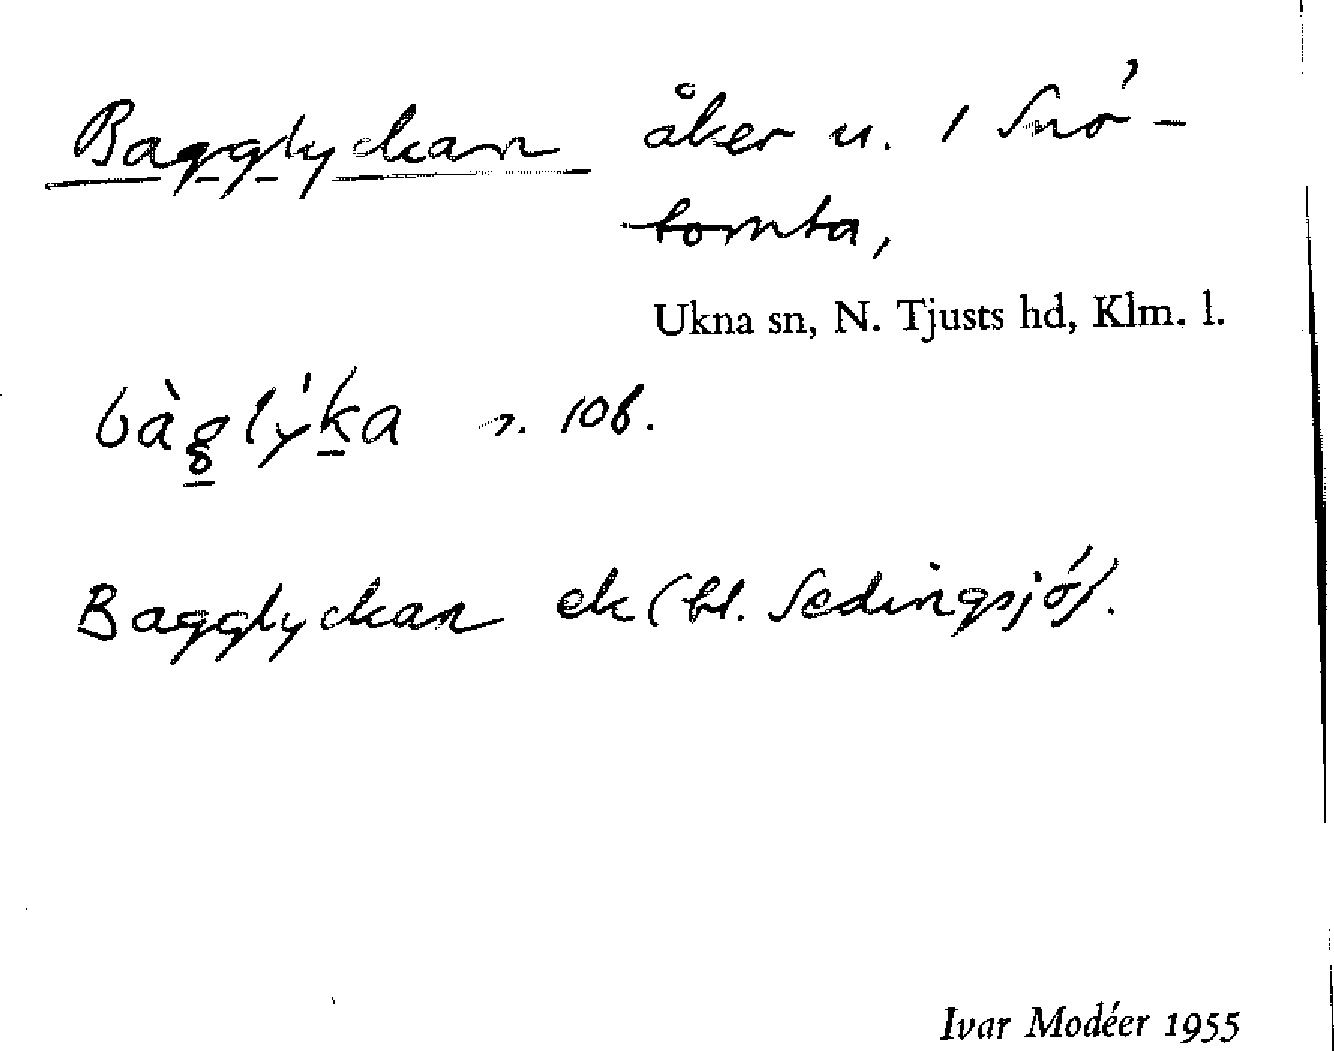 Bagglyckan åker u. 1 Snö-
tomta,
Ukna sn, N. Tjusts hd, Klm. l.
bàg̲lýk̲a s. 106.
Bagglyckan ek (bl. Sedingsjö).
Ivar Modéer 1955